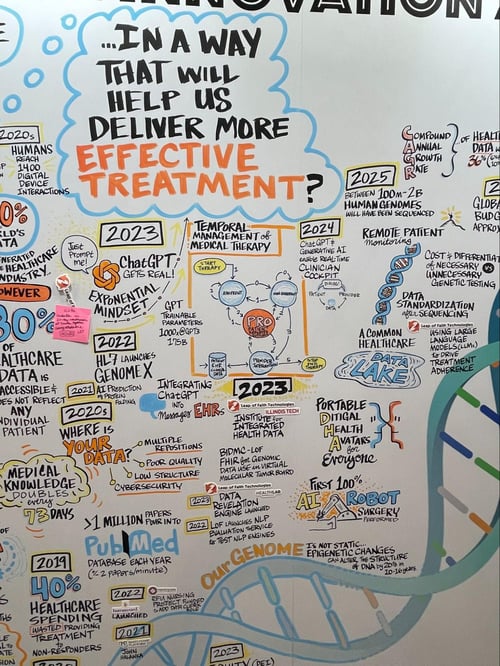 INNOVATION
...IN A WAY
THAT WILL
HELP US
DELIVER MORE
EFFECTIVE
TREATMENT?
2020s
HUMANS
REACH
1400
DIGITAL
DEVICE
INTERACTIONS
HEALTHCARE
INDUSTRY
HOWEVER
80%
OF
HEALTHCARE
DATA IS
DOES NOT REFLECT
ANY
INDIVIDUAL
PATIENT
2023
Just
Prompt
me!
ChatGPT
GETS REAL!
EXPONENTIAL
MINDSET
GPT
TRAINABLE
PARAMETERS
2022
HL7 LAUNCHES
GENOME X
2021
AI PREDICTION
PROTEIN
FOLDING
2020s
WHERE IS
YOUR
DATA?
MULTIPLE
REPOSITIONS
POOR QUALITY
LOW STRUCTURE
CYBERSECURITY
MEDICAL
KNOWLEDGE
DOUBLES
every
73 DAYS
>1 MILLION PAPERS
POUR INTO
PubMed
DATABASE EACH YEAR
(≈ 2 PAPERS/MINUTE)
2019
40%
HEALTHCARE
SPENDING
WASTED PROVIDING
TREATMENT
TO
NON-RESPONDERS
2022
LAUNCHED
2021
TEMPORAL
MANAGEMENT OF
MEDICAL THERAPY
START
THERAPY
PRO
STOP
THERAPY
2024
ChatGPT &
GENERATIVE AI
REALTIME
CLINICIAN
COCKPIT
PATIENT
PROVIDER
DATA
2023
INTEGRATING
ChatGPT
INTO
Messages
EHRs
Leap of Faith Technologies
ILLINOIS TECH
INSTITUTE for
INTEGRATED
HEALTH DATA
BIDMC-LOF
FHIR for GENOMIC
DATA USE in VIRTUAL
MOLECULAR TUMOR BOARD
2023
Leap of Faith Technologies
DATA
REVELATION
ENGINE LAUNCHED
2022
LOF LAUNCHES NLP
EVALUATION SERVICE
to TEST NLP ENGINES
COMPOUND
ANNUAL
GROWTH
RATE
OF HEALTH
DATA
36%
2025
BETWEEN 100M-2B
HUMAN GENOMES
WILL HAVE BEEN SEQUENCED
REMOTE PATIENT
Monitoring
COST & DIFFERENTIATION
OF NECESSARY vs
UNNECESSARY
GENETIC TESTING
DATA
STANDARDIZATION
after SEQUENCING
A COMMON
HEALTHCARE
DATA
LAKE
Leap of Faith Technologies
USING LARGE
LANGUAGE
MODELS (LLMs)
TO DRIVE
TREATMENT
ADHERENCE
PORTABLE
DIGITAL
HEALTH
AVATARS
for
Everyone
FIRST 100%
AI ROBOT
SURGERY
PERFORMED
OUR GENOME
IS NOT STATIC...
EPIGENETIC CHANGES
CAN ALTER THE STRUCTURE
OF DNA BY 20% in
10-16 YEARS
2023